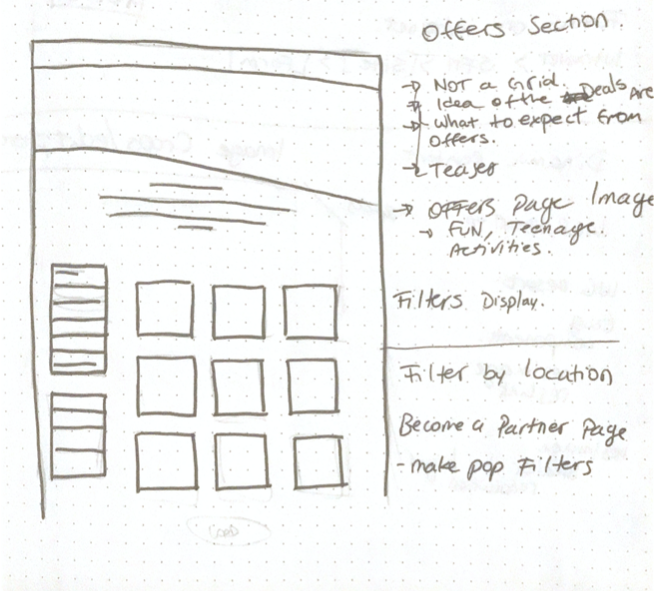 Offers Section.
→ NOT a Grid.
→ Idea of the Deals Are
→ what to expect from
offers.
→ Teaser
→ OFFERS Page Image
→ FUN, Teenage.
Activities.
Filters Display.
Filter by location
Become a Partner Page
- make pop Filters